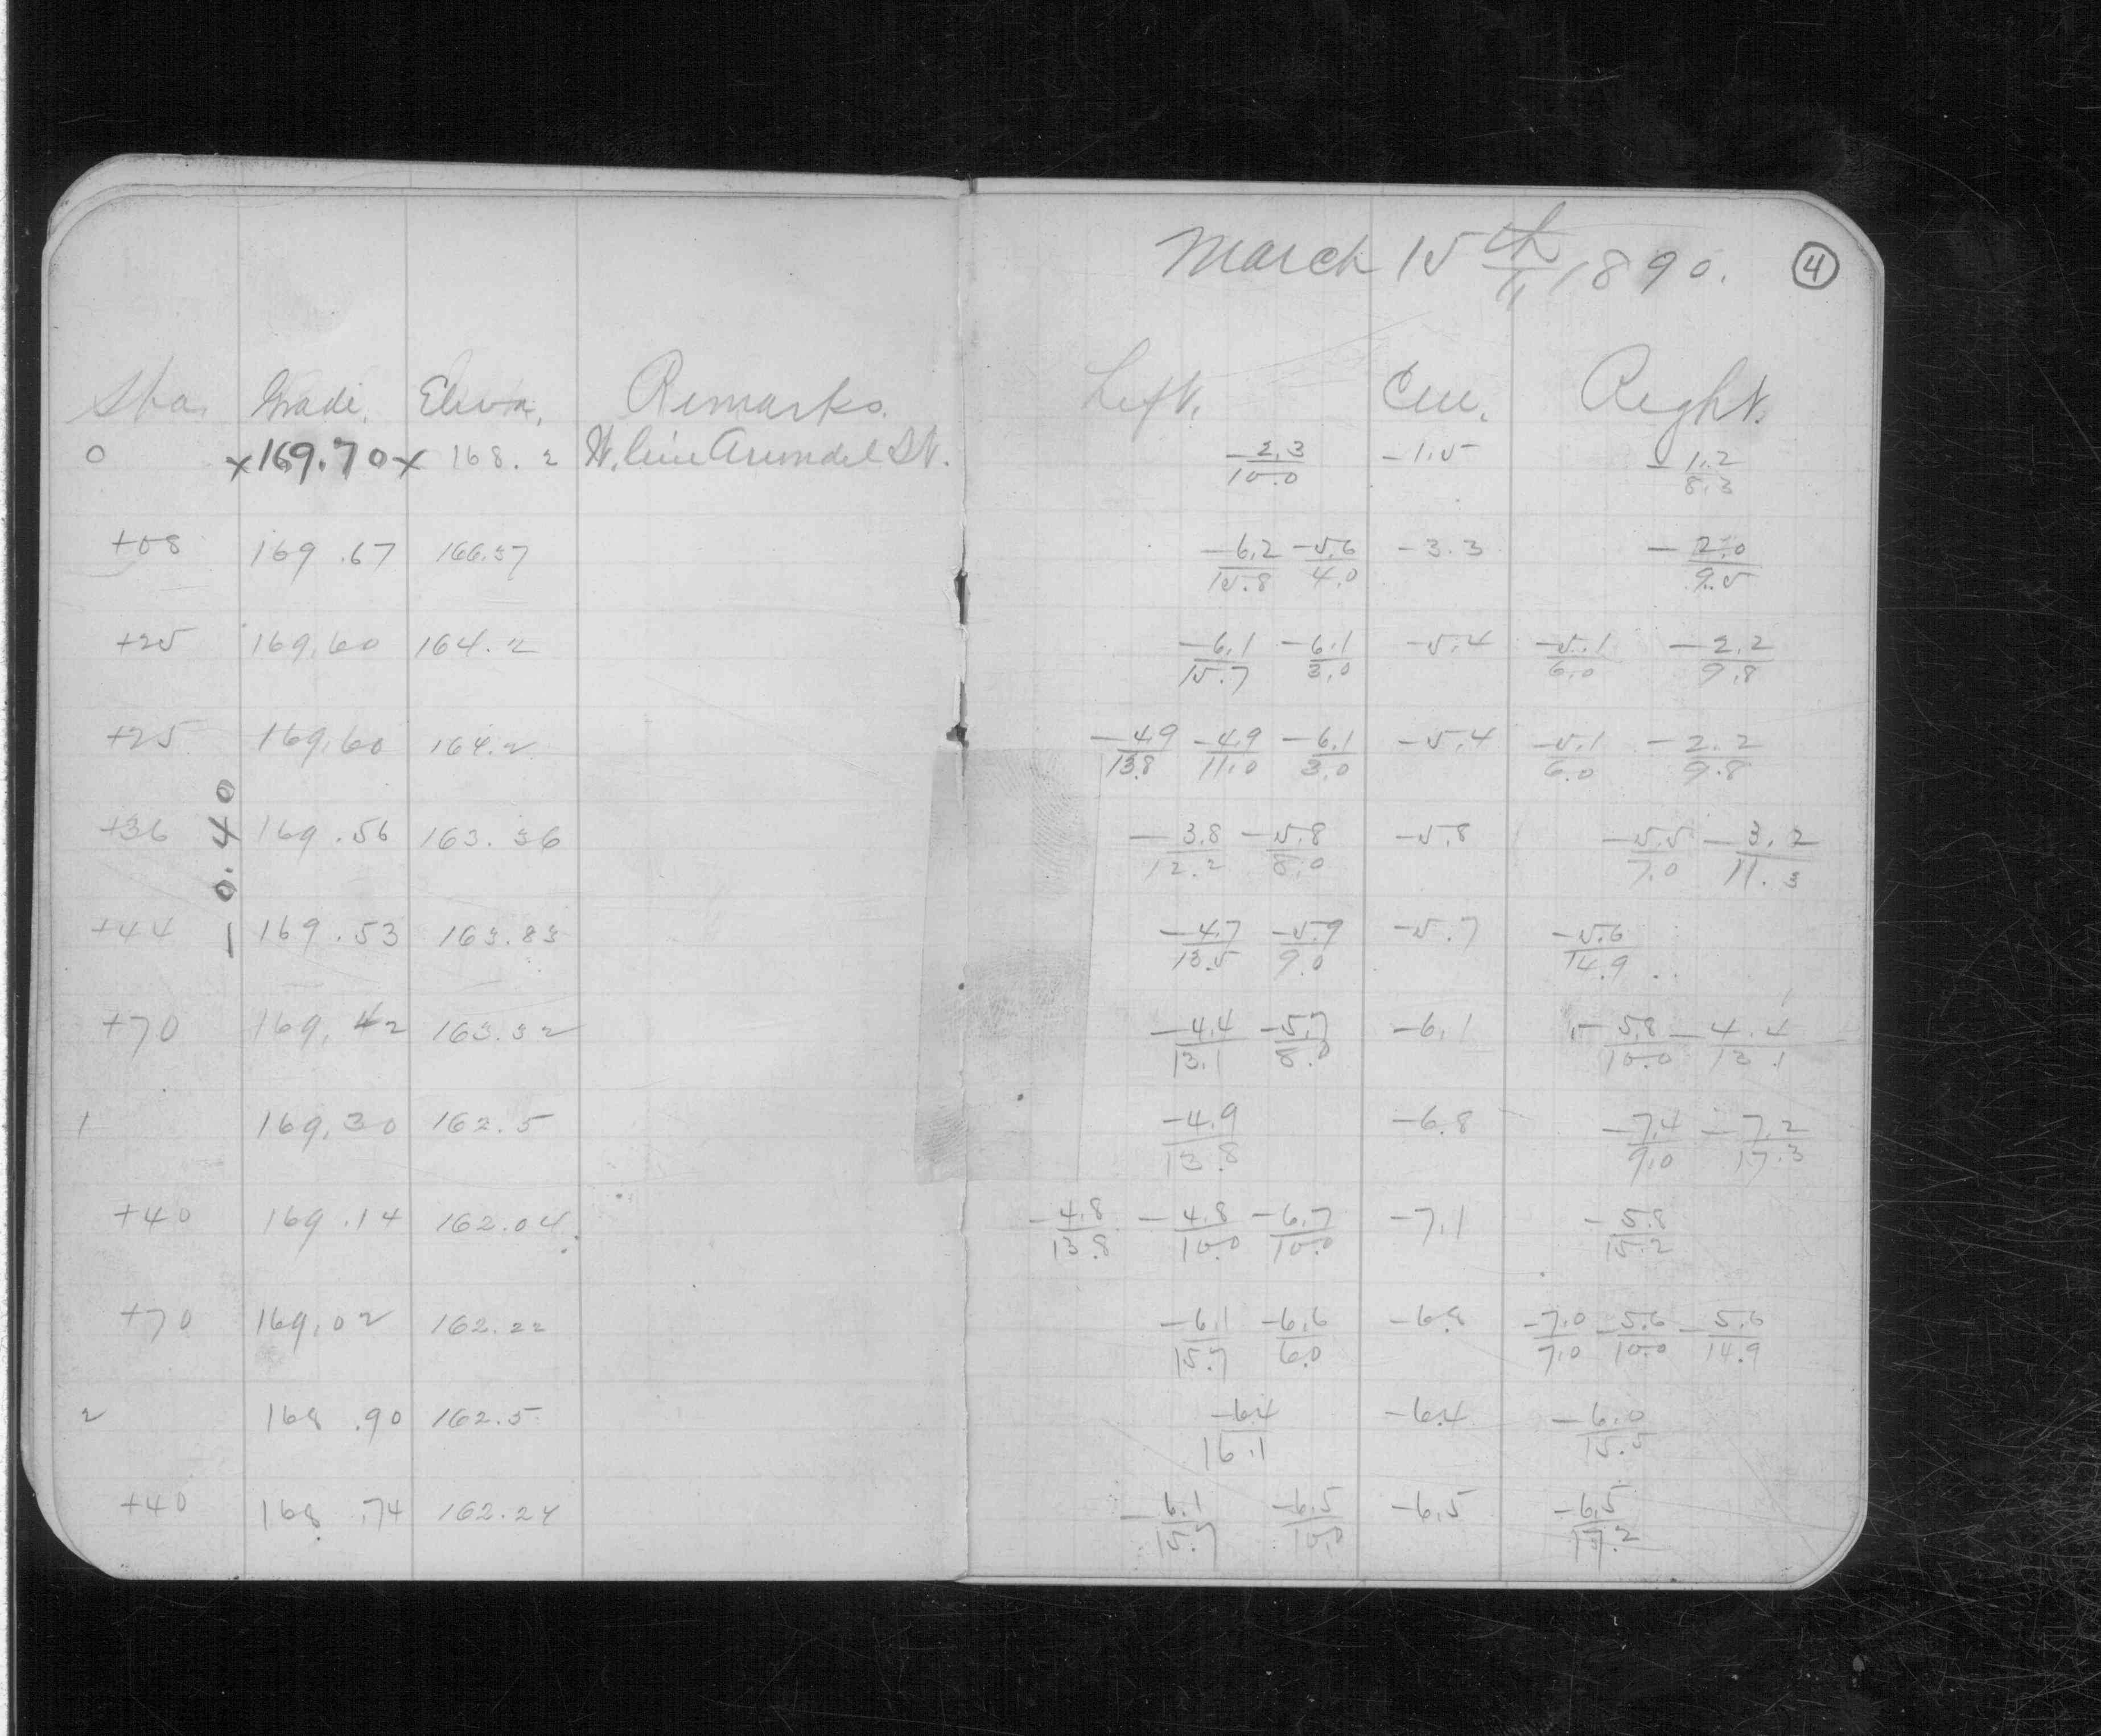 March 15th 1890. 4
Sta. Grade. Eleva. Remarks. Left. Cen. Right.
0 x169.70x 168.2 W. line Arundel St. -2.3/10.0 -1.5 -1.2/8.3
+08 169.67 166.37 -6.2/15.8 -5.6/4.0 -3.3 -2.0/9.5
+25 169.60 164.2 -6.1/15.7 -6.1/3.0 -5.4 -5.1/6.0 -2.2/9.8
+25 169.60 164.2 -4.9/13.8 -4.9/11.0 -6.1/3.0 -5.4 -5.1/6.0 -2.2/9.8
+36 169.56 163.36 -3.8/12.2 -5.8/8.0 -5.8 -5.5/7.0 -3.2/11.3
-0.40
+44 169.53 163.83 -4.7/13.5 -5.9/9.0 -5.7 -5.6/14.9
+70 169.42 163.32 -4.4/13.1 -5.7/8.0 -6.1 -5.8/10.0 -4.4/13.1
1 169.30 162.5 -4.9/13.8 -6.8 -7.4/9.0 -7.2/17.3
+40 169.14 162.04 -4.8/13.8 -4.8/10.0 -6.7/10.0 -7.1 -5.8/15.2
+70 169.02 162.22 -6.1/15.7 -6.6/6.0 -6.8 -7.0/7.0 -5.6/10.0 -5.6/14.9
2 168.90 162.5 -6.4/16.1 -6.4 -6.0/15.5
+40 168.74 162.24 -6.1/15.7 -6.5/10.0 -6.5 -6.5/17.2